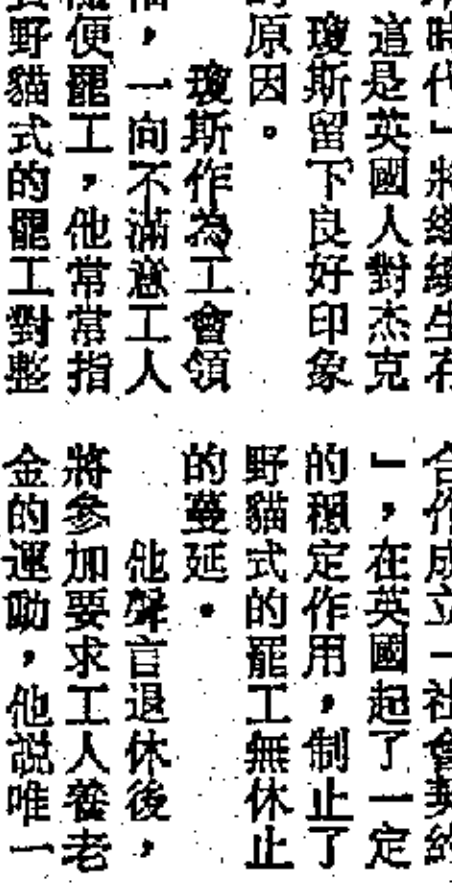 時代」將繼續生存
這是英國人對杰克
瓊斯留下良好印象
的原因。
瓊斯作為工會領
袖，一向不滿意工人
便罷工，他常常指
野貓式的罷工對整
合作成立「社會契約
」，在英國起了一定
的穩定作用，制止了
野貓式的罷工無休止
的蔓延。
他聲言退休後，
將參加要求工人養老
金的運動，他說唯一